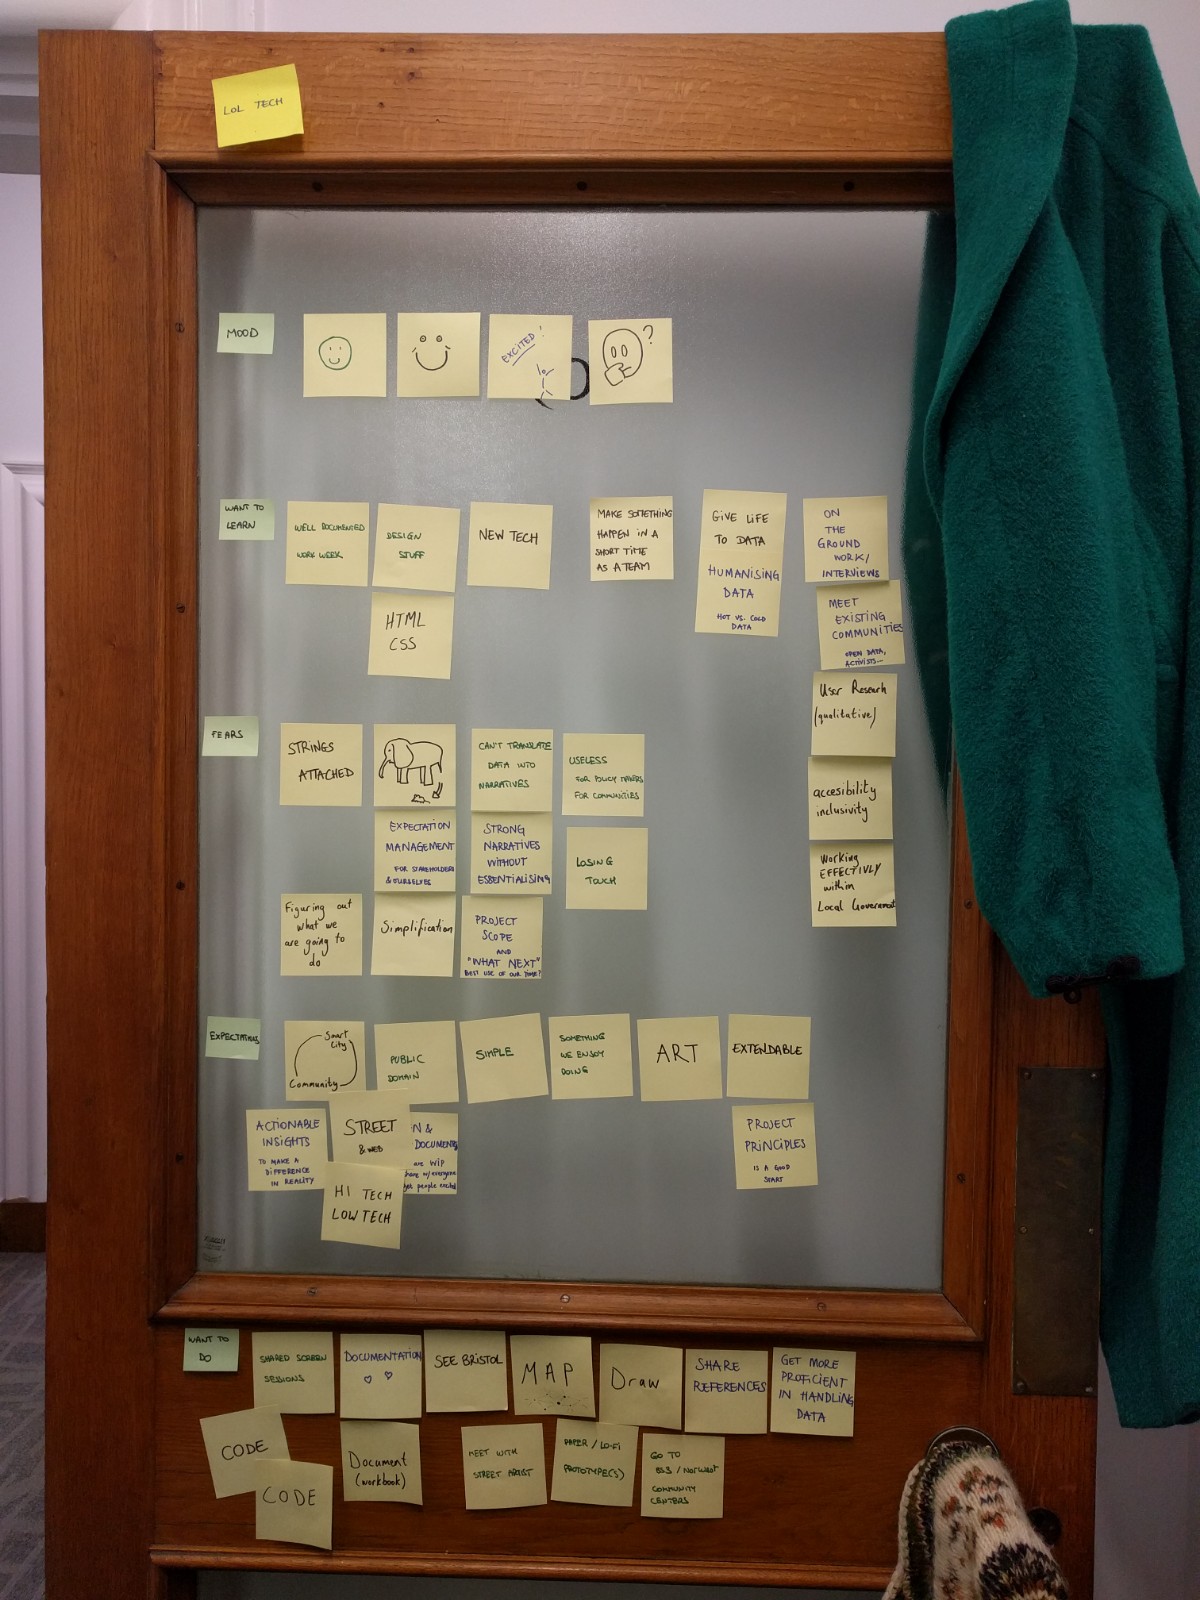 LOL TECH
MOOD
EXCITED!
?
WANT TO
LEARN
WELL DOCUMENTED
WORK WEEK
DESIGN
STUFF
HTML
CSS
NEW TECH
MAKE SOMETHING
HAPPEN IN A
SHORT TIME
AS A TEAM
GIVE LIFE
TO DATA
HUMANISING
DATA
HOT VS. COLD
DATA
ON
THE
GROUND
WORK/
INTERVIEWS
MEET
EXISTING
COMMUNITIES
OPEN DATA,
ACTIVISTS...
User Research
(qualitative)
accesibility
inclusivity
Working
EFFECTIVLY
within
Local Government
FEARS
STRINGS
ATTACHED
CAN'T TRANSLATE
DATA INTO
NARRATIVES
USELESS
FOR POLICY MAKERS
FOR COMMUNITIES
EXPECTATION
MANAGEMENT
FOR STAKEHOLDERS
& OURSELVES
STRONG
NARRATIVES
WITHOUT
ESSENTIALISING
LOSING
TOUCH
Figuring out
what we
are going to
do
Simplification
PROJECT
SCOPE
AND
"WHAT NEXT"
BEST USE OF OUR TIME?
EXPECTATIONS
Smart
City
Community
PUBLIC
DOMAIN
SIMPLE
SOMETHING
WE ENJOY
DOING
ART
EXTENDABLE
ACTIONABLE
INSIGHTS
TO MAKE A
DIFFERENCE
IN REALITY
STREET
& WEB
N &
DOCUMENTS
are WIP
share w/everyone
get people excited
HI TECH
LOW TECH
PROJECT
PRINCIPLES
IS A GOOD
START
WANT TO
DO
SHARED SCREEN
SESSIONS
DOCUMENTATION
SEE BRISTOL
MAP
Draw
SHARE
REFERENCES
GET MORE
PROFICIENT
IN HANDLING
DATA
CODE
CODE
Document
(workbook)
MEET WITH
STREET ARTIST
PAPER / LO-FI
PROTOTYPE(S)
GO TO
COMMUNITY
CENTERS